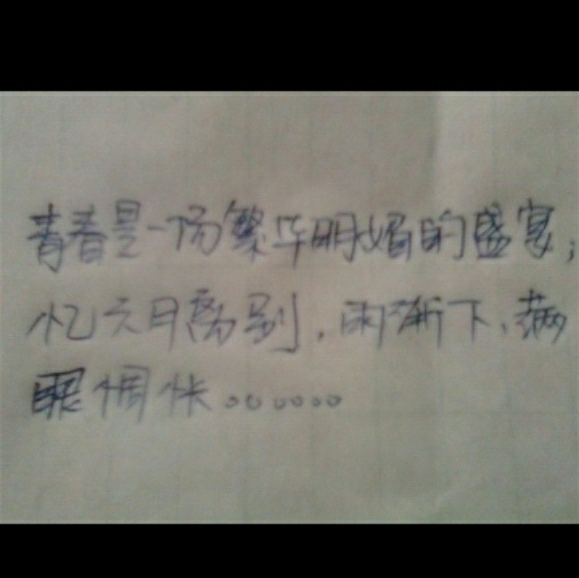 青春是一场繁华明媚的盛宴;
忆六月离别,雨渐下,满
眼惆怅。。。。。。